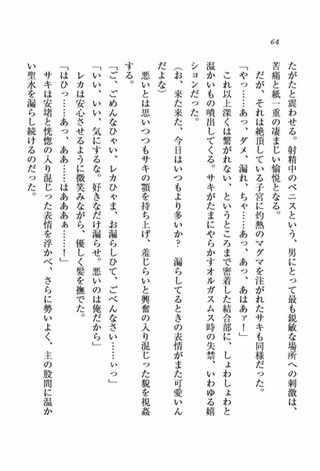 64
たがたと震わせる。射精中のペニスという、男にとって最も鋭敏な場所への刺激は、
苦痛と紙一重の凄まじい愉悦となる。
だが、それは絶頂している子宮に灼熱のマグマを注がれたサキも同様だった。
「やっ……あっ、ダメ、漏れ、ちゃ……あっ、あっ、あはあァ！」
これ以上深くは繋がれない、というところまで密着した結合部に、しょわしょわと
温かいもの噴出してくる。サキがたまにやらかすオルガスムス時の失禁、いわゆる嬉
ションだった。
（お、来た来た、今日はいつもより多いか？　漏らしてるときの表情がまた可愛いん
だよな）
悪いとは思いつつもサキの顎を持ち上げ、羞じらいと興奮の入り混じった貌を視姦
する。
「ご、ごめんなひゃい、レカひゃま、お漏らしひて、ごべんなさい……ぃっ」
「いい、いい、気にするな。好きなだけ漏らせ。悪いのは俺だから」
レカは安心させるように微笑みながら、優しく髪を撫でた。
「はひっ……あっ、ああ……はあああぁ……っ」
サキは安堵と恍惚の入り混じった表情を浮かべ、さらに勢いよく、主の股間に温か
い聖水を漏らし続けるのだった。